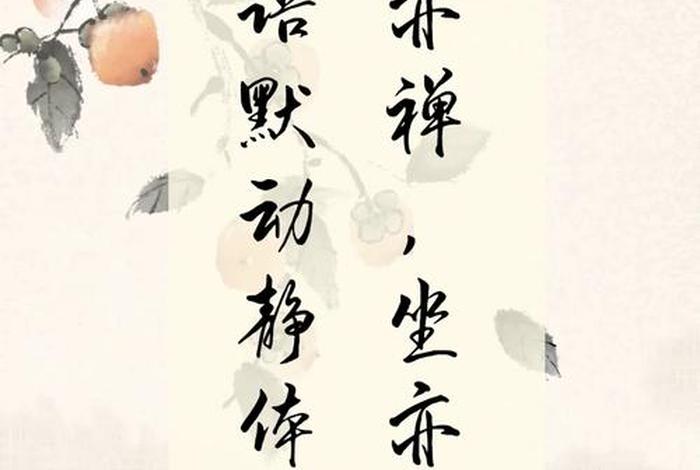 亦禅，坐亦
语默动静体